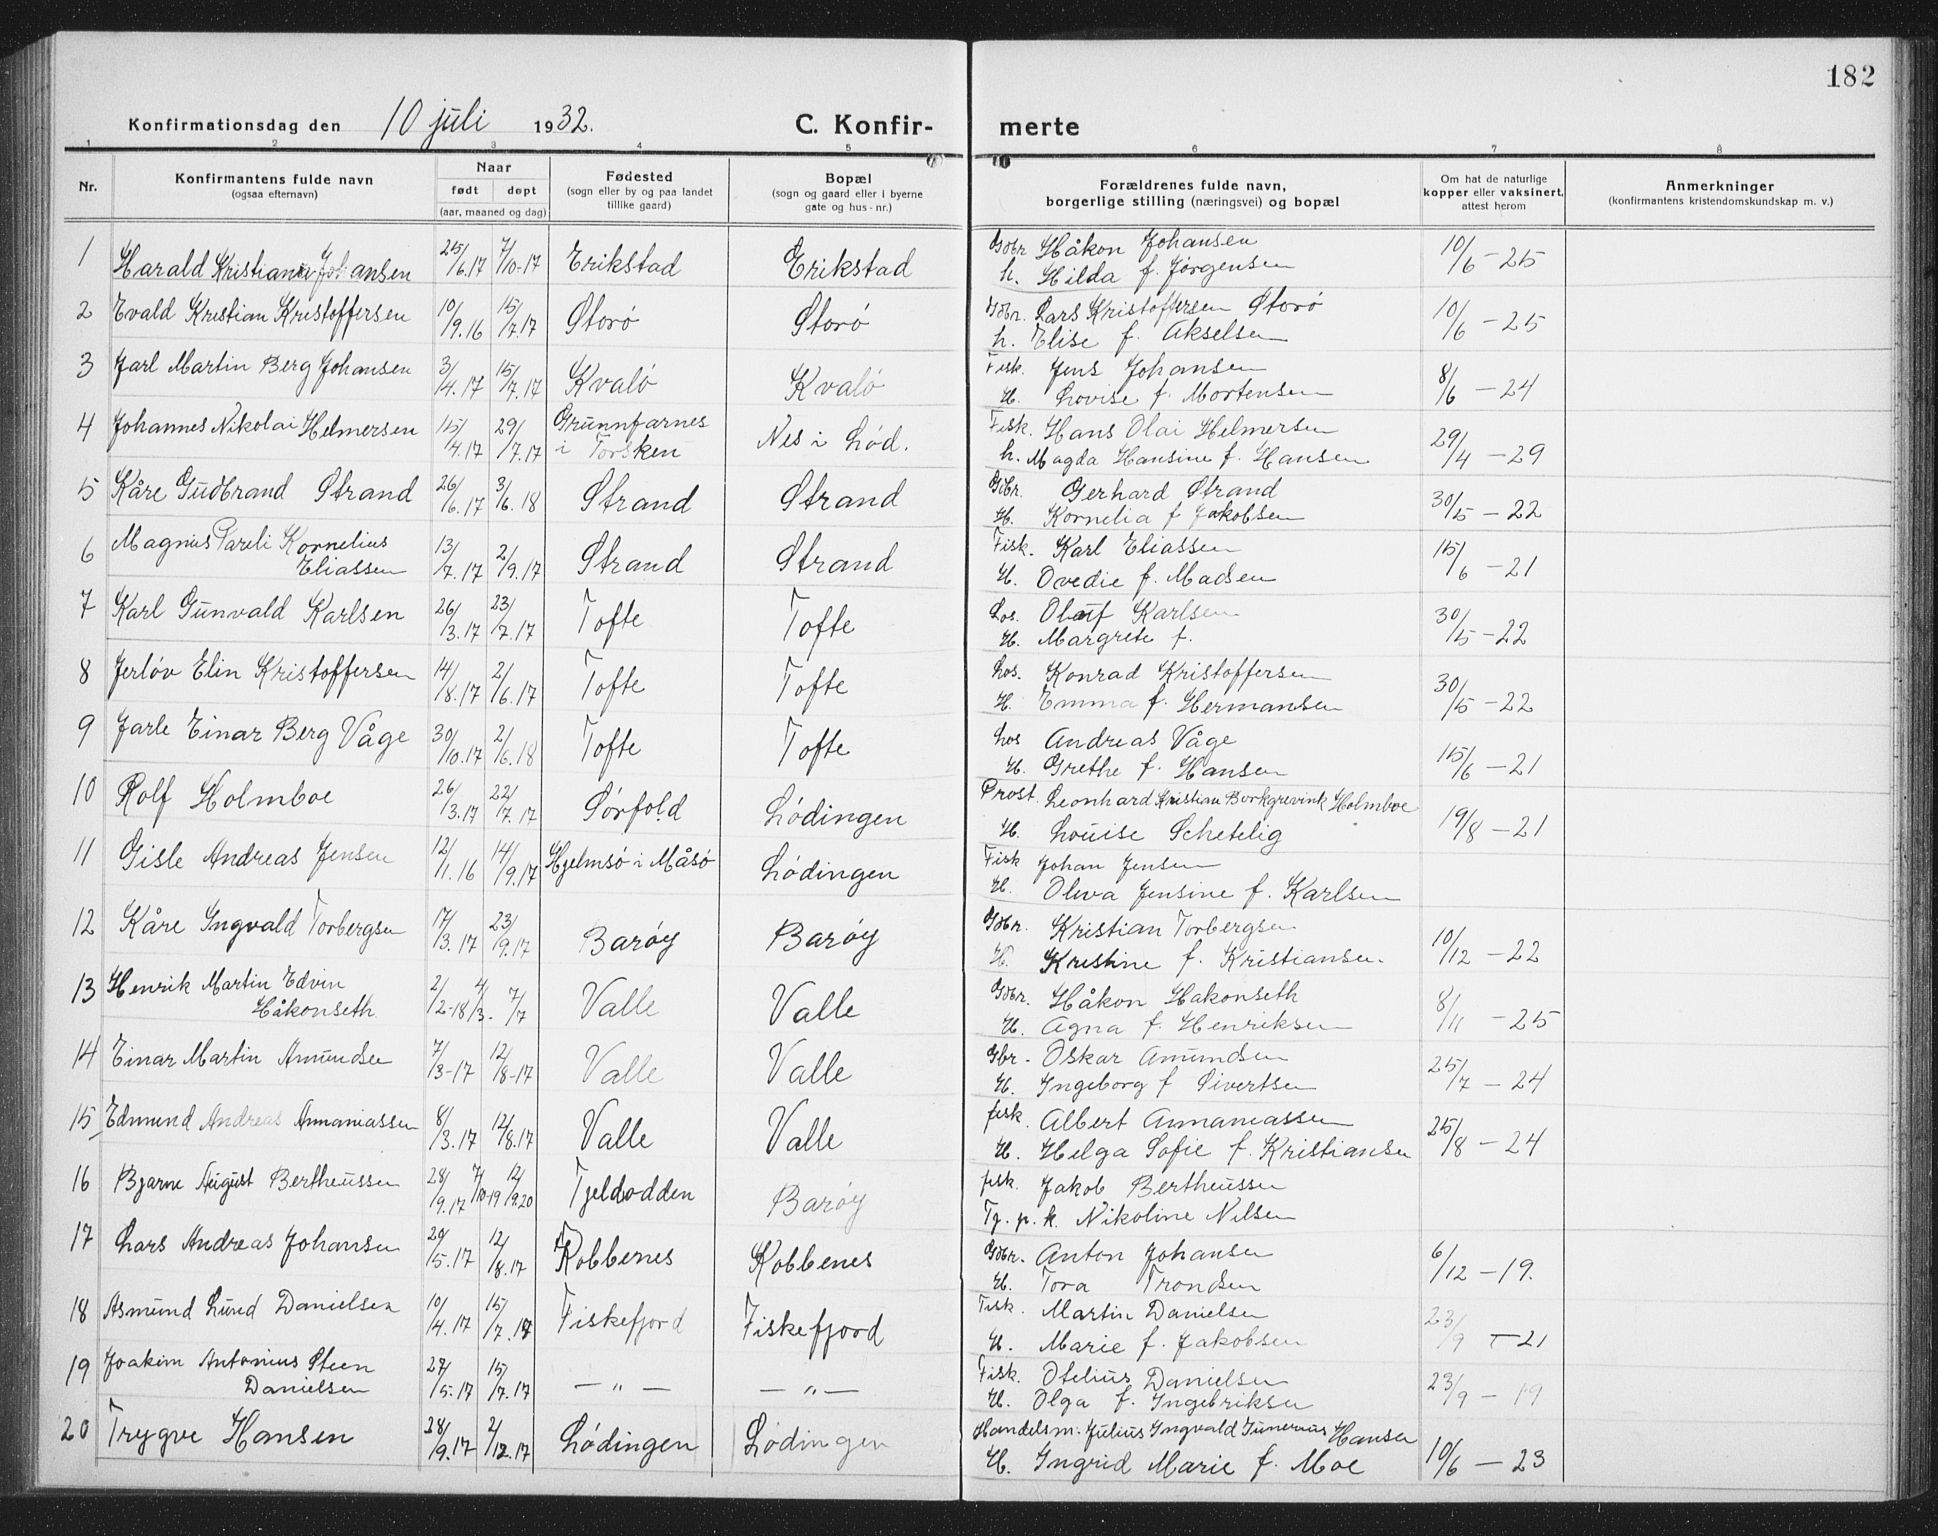 182
Konfirmationsdag den 10 juli 1932. C. Konfir- merte
1 2 3 4 5 6 7 8
Nr. Konfirmantens fulde navn (ogsaa efternavn) Naar født døpt (aar, maaned og dag) Fødested (sogn eller by og paa landet tillike gaard) Bopæl (sogn og gaard eller i byerne gate og hus-nr.) Forældrenes fulde navn, borgerlige stilling (næringsvei) og bopæl Om hat de naturlige kopper eller vaksinert, attest herom Anmerkninger (konfirmantens kristendomskundskap m. v.)
1 Harald Kristian Johansen 25/6.17 7/10-17 Erikstad Erikstad Gdbr Håkon Johansen 10/6-25
h. Hilda f. Jørgensen
2 Evald Kristian Kristoffersen 10/9.16 15/7.17 Storø Storø Gdbr. Lars Kristoffersen Storø 10/6-25
h. Elise f. Akselsen
3 Jarl Martin Berg Johansen 3/4.17 15/7.17 Kvalö Kvalö Fisk. Jens Johansen 8/6-24
H. Lovise f. Mortensen
4 Johannes Nikolai Helmersen 15/4.17 29/7.17 Grunnfarnes i Torsken Nes i Lød. Fisk. Hans Olai Helmersen 29/4-29
h. Magda Hansine f. Hansen
5 Kåre Gudbrand Strand 26/6.17 3/6.18 Strand Strand Gdbr. Gerhard Strand 30/5-22
H. Kornelia f Jakobsen
6 Magnus Pareli Kornelius
Eliassen 13/7.17 2/9.17 Strand Strand Fisk. Karl Eliassen 15/6-21
H. Ovedie f. Madsen
7 Karl Gunvald Karlsen 26/3.17 23/7.17 Tofte Tofte Los. Oluf Karlsen 30/5-22
H. Margrete f.
8 Jerløv Elin Kristoffersen 14/8.17 2/6.17 Tofte Tofte Los. Konrad Kristoffersen 30/5-22
H. Emma f. Hermansen
9 Jarle Einar Berg Våge 30/10.17 2/6.18 Tofte Tofte Los Andreas Våge 15/6-21
H. Grethe f. Hansen
10 Rolf Holmboe 26/3.17 22/7.17 Sörfold Lödingen Prost. Leonhard Kristian Borkgrevink Holmboe 19/8-21
H. Louise Schetelig
11 Gisle Andreas Jensen 12/1.16 14/9.17 Hjelmsö i Måsö Lödingen Fisk Johan Jensen
H. Oleva Jensine f. Karlsen
12 Kåre Ingvald Torbergsen 17/3.17 23/9.17 Barøy Barøy Gdbr. Kristian Torbergsen 10/12-22
H. Kristine f. Kristiansen.
13 Henrik Martin Edvin
Håkonseth 2/2-18 4/3. 7/7 Valle Valle Gdbr. Håkon Hakonseth 8/11-25
H. Agna f. Henriksen
14 Einar Martin Amundsen 7/3-17 12/8-17 Valle Valle Gbr. Oskar Amundsen 25/7-24
H. Ingeborg f Sivertsen
15 Edmund Andreas Annaniassen 8/3.17 12/8.17 Valle Valle fisk. Albert Annaniassen 25/8-24
H. Helga Sofie f. Kristiansen
16 Bjarne August Bertheussen 28/9.17 7/10-19 12/9.20 Tjeldodden Barøy fisk. Jakob Bertheussen
Tj. p. k. Nikoline Nilsen
17 Lars Andreas Johansen 29/5.17 12/8.17 Kobbenes Kobbenes Gdbr. Anton Johansen 6/12-19.
H. Tora Trondsen
18 Asmund Lund Danielsen 10/4.17 15/7.17 Fiskefjord Fiskefjord Fisk. Martin Danielsen 23/9-21
H. Marie f. Jakobsen
19 Joakim Antonius Steen
Danielsen 27/5.17 15/7.17 — " — — " — Fisk. Otelius Danielsen 23/9-19
H. Olga f. Ingebriksen
20 Trygve Hansen 28/9.17 2/12.17 Lödingen Lödingen Handelsm. Julius Ingvald Hansen 10/6-23
H. Ingrid Marie f. Moe